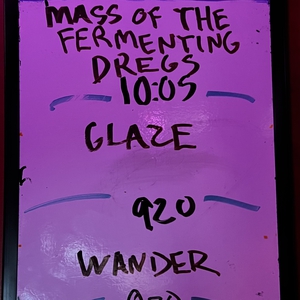 MASS OF THE
FERMENTING
DREGS
10:05
GLAZE
920
WANDER